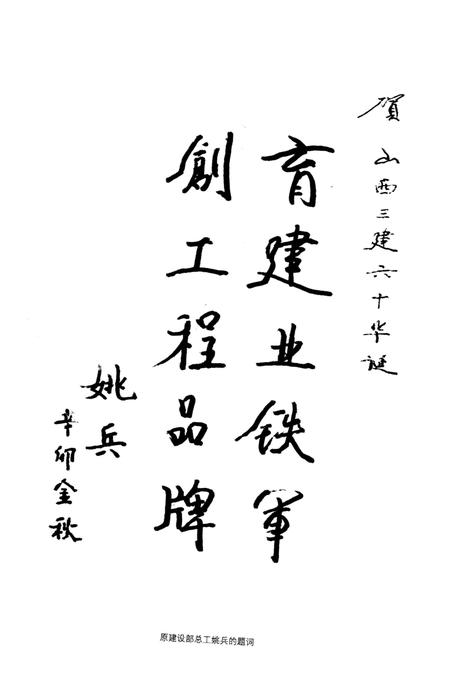 贺山西三建六十华诞
育建业铁军
創工程品牌
姚兵
辛卯金秋
原建设部总工姚兵的题词